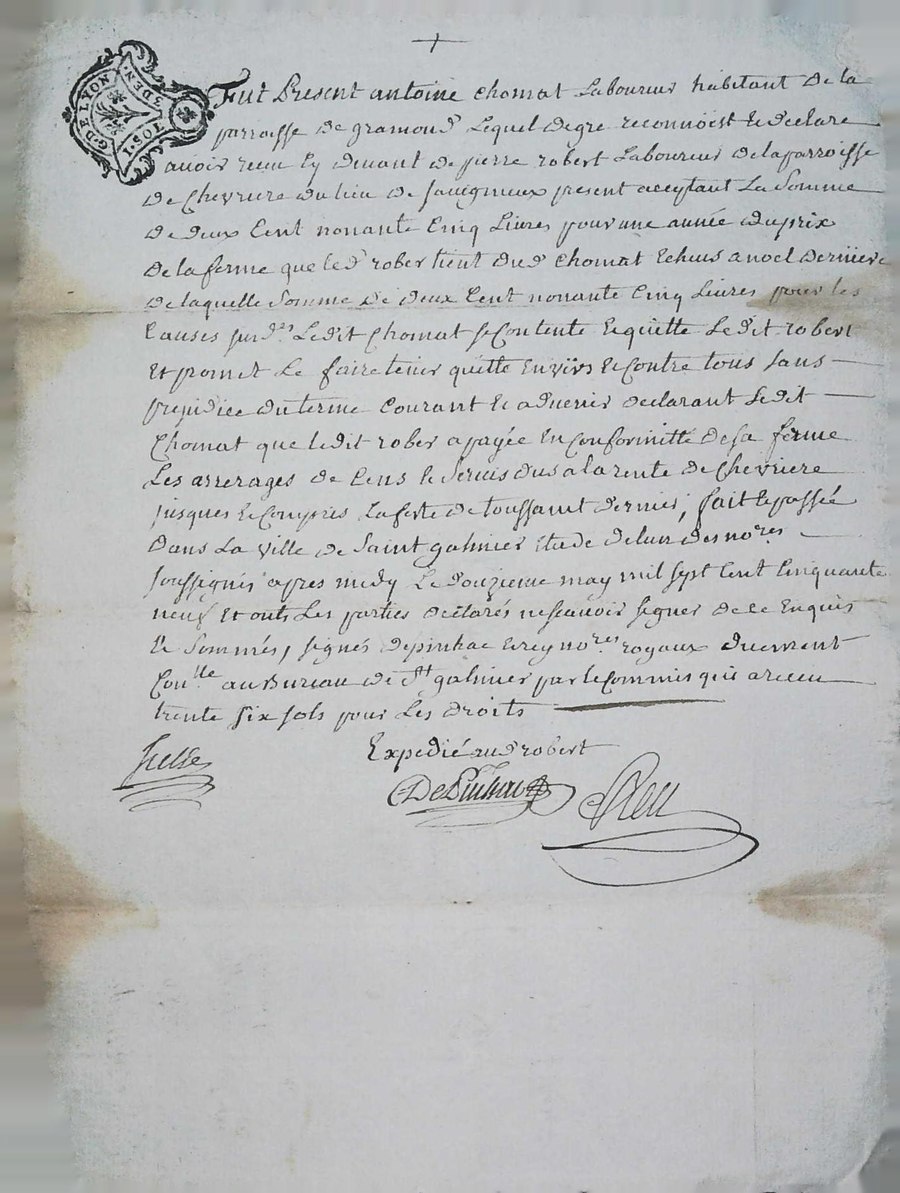 G. DE LYON
1 SOL 3 DEN.
Fut Present antoine Chomat Laboureur habitant De la
parroisse De gramond Lequel De gre reconnoist et declare
avoir receu cy devant de pierre robert Laboureur De la parroisse
De Chevriere Du lieu De Savigneux present acceptant La Somme
De deux Cent nonante Cinq Livres pour une année Du prix
De la ferme que led robert tient Dud Chomat Echeus a noel Derniere
De laquelle Somme De deux Cent nonante Cinq Livres pour les
Causes susd.es Ledit Chomat se Contente et quitte Ledit robert
Et promet Le faire tenir quitte Envers et Contre tous sans
prejudice Du terme Courant et advenir declarant Ledit
Chomat que ledit rober a payée En Conformitté De sa ferme
Les arrerages de Cens et Servis dus a la rente de Chevriere
jusques et Compris La feste de toussaint dernier, fait et passée
Dans La ville de Saint galmier Etude de lun Des no.res
soussignés apres midy Le douzieme may mil sept Cent Cinquante
neuf Et onts Les parties declarés ne scavoir signer de ce Enquis
Et Sommés, signés Depinhac et rey no.res royaux duement
Con.lle au Bureau de S.t galmier par le Commis qui a receu
trente six sols pour Les droits
Expedié aud robert
DePinhac